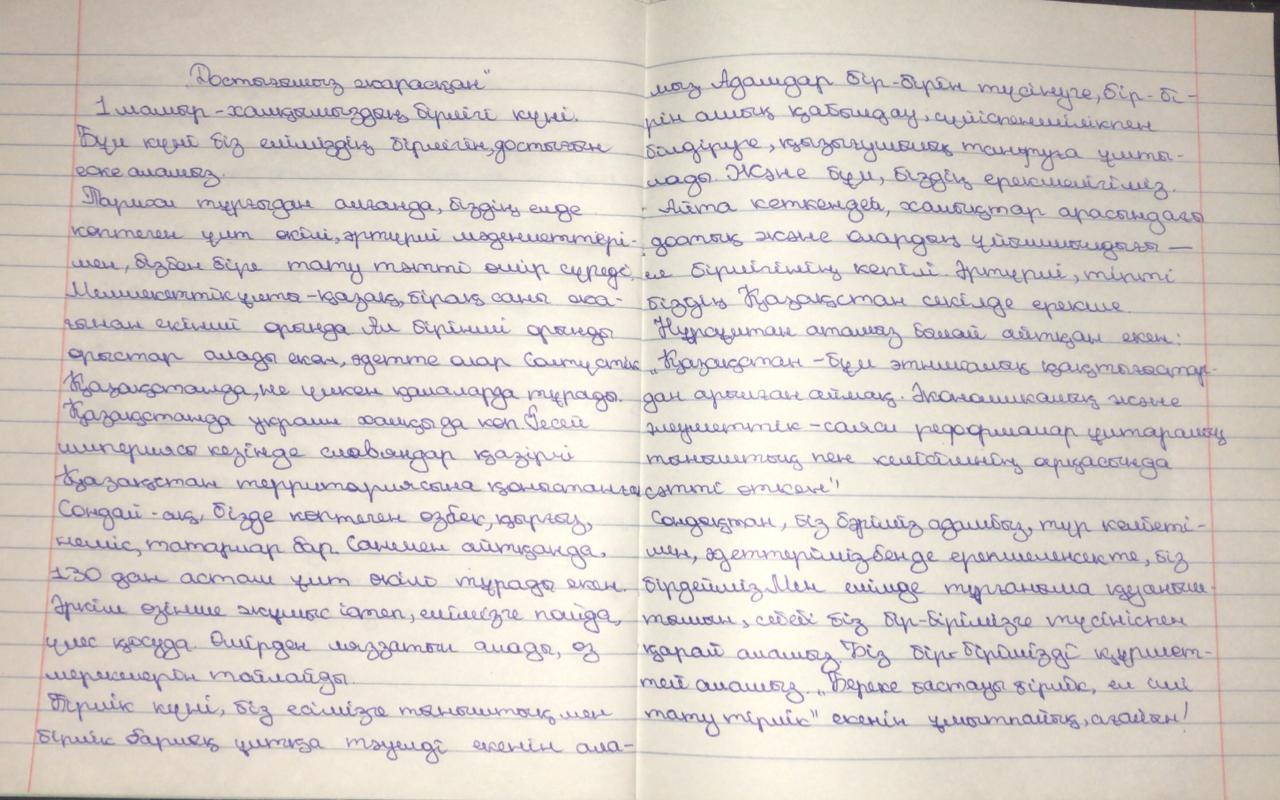 „Достығымыз жарасқан"
1 мамыр - халқымыздың бірлігі күні.
Бұл күні біз еліміздің бірлігін, достығын
еске аламыз.
Тарихи тұрғыдан алғанда, біздің елде
көптеген ұлт өкілі, әртүрлі мәдениеттері-
мен, бізбен бірге тату тәтті өмір сүреді,
Мемлекеттік ұлты - қазақ, бірақ саны жа-
ғынан екінші орында. Ал бірінші орынды
орыстар алады екен, әдетте олар Солтүстік
Қазақстанда, не үлкен қалаларда тұрады.
Қазақстанда украин халқы да көп. Ресей
империясы кезінде славяндар қазіргі
Қазақстан территориясына қоныстанған
Сондай-ақ, бізде көптеген өзбек, қырғыз,
неміс, татарлар бар. Санмен айтқанда,
130 дан астам ұлт өкілі тұрады екен.
Әркім өзінше жұмыс істеп, елімізге пайда,
үлес қосуда. Өмірден ләззатын алады, өз
мерекелерін тойлайды.
Бірлік күні, біз есімізге тыныштық мен
бірлік барлық ұлтқа тәуелді екенін ала-
мыз Адамдар бір-бірін түсінуге, бір-бі-
рін алық қабылдау, сүйіспеншілікпен
білдіруге, қызығушылық танытуға ұмты-
лады. Және бұл, біздің ерекшелігіміз.
Айта кеткендей, халықтар арасындағы
достық және олардың ұйымшылдығы —
ел бірлігінің кепілі. Әртүрлі, тіпті
біздің Қазақстан секілде ерекше.
Нұрсұлтан атамыз былай айтқан екен:
„Қазақстан - бұл этникалық қақтығыстар-
дан арылған аймақ. Экономикалық және
әлуметтік - саяси реформалар ұлтаралық
тыныштық пен келісімнің арқасында
сәтті өткен"!
Сондықтан, біз бәріміз адамбыз, түр келбеті-
мен, әдеттерімізбенде ерекшеленсекте, біз
бірдейміз. Мен елімде тұрғаныма қуаныш-
тымын, себебі біз бір-бірімізге түсініспен
қарай аламыз. Біз бір-бірімізді құрмет-
тей аламыз. „Береке бастауы бірлік, ел іші
тату тірлік" екенін ұмытпайық, ағайын!